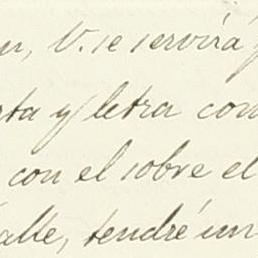 V. se servirá
y letra con
con el sobre el
alle, tendré un